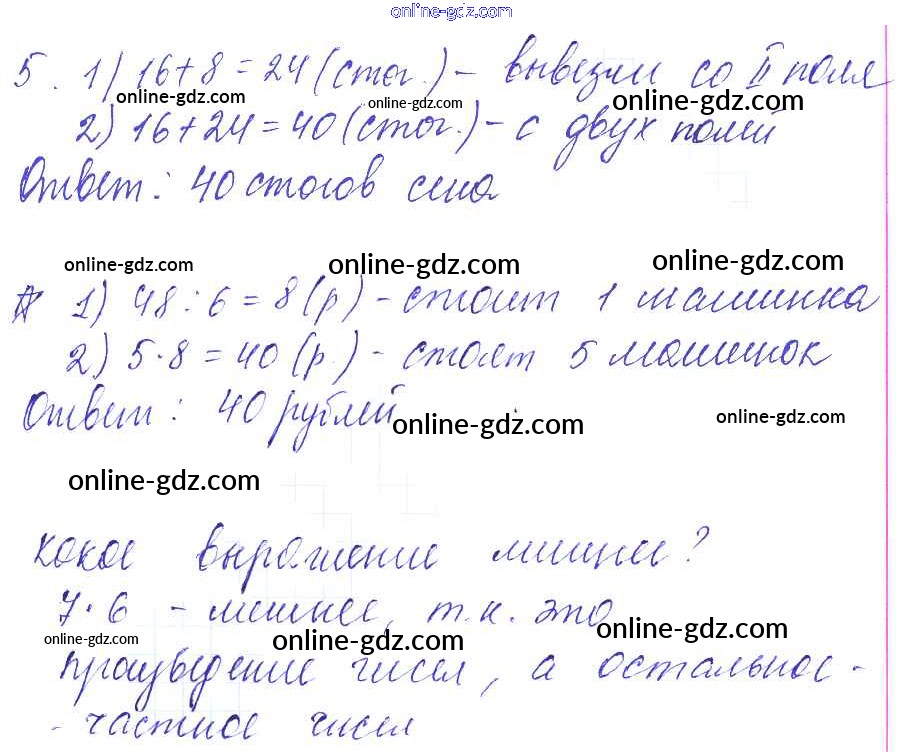 online-gdz.com
5. 1) 16+8=24 (стог.) - вывезли со II поля
online-gdz.com online-gdz.com online-gdz.com
2) 16+24=40 (стог.) - с двух полей
Ответ: 40 стогов сена
online-gdz.com online-gdz.com online-gdz.com
1) 48:6=8 (р) - стоит 1 машинка
2) 5·8=40 (р.) - стоят 5 машинок
Ответ: 40 рублей
online-gdz.com online-gdz.com
online-gdz.com
Какое выражение лишнее?
7·6 - лишнее, т.к. это
online-gdz.com online-gdz.com online-gdz.com
произведение чисел, а остальное -
- частное чисел
online-gdz.com online-gdz.com